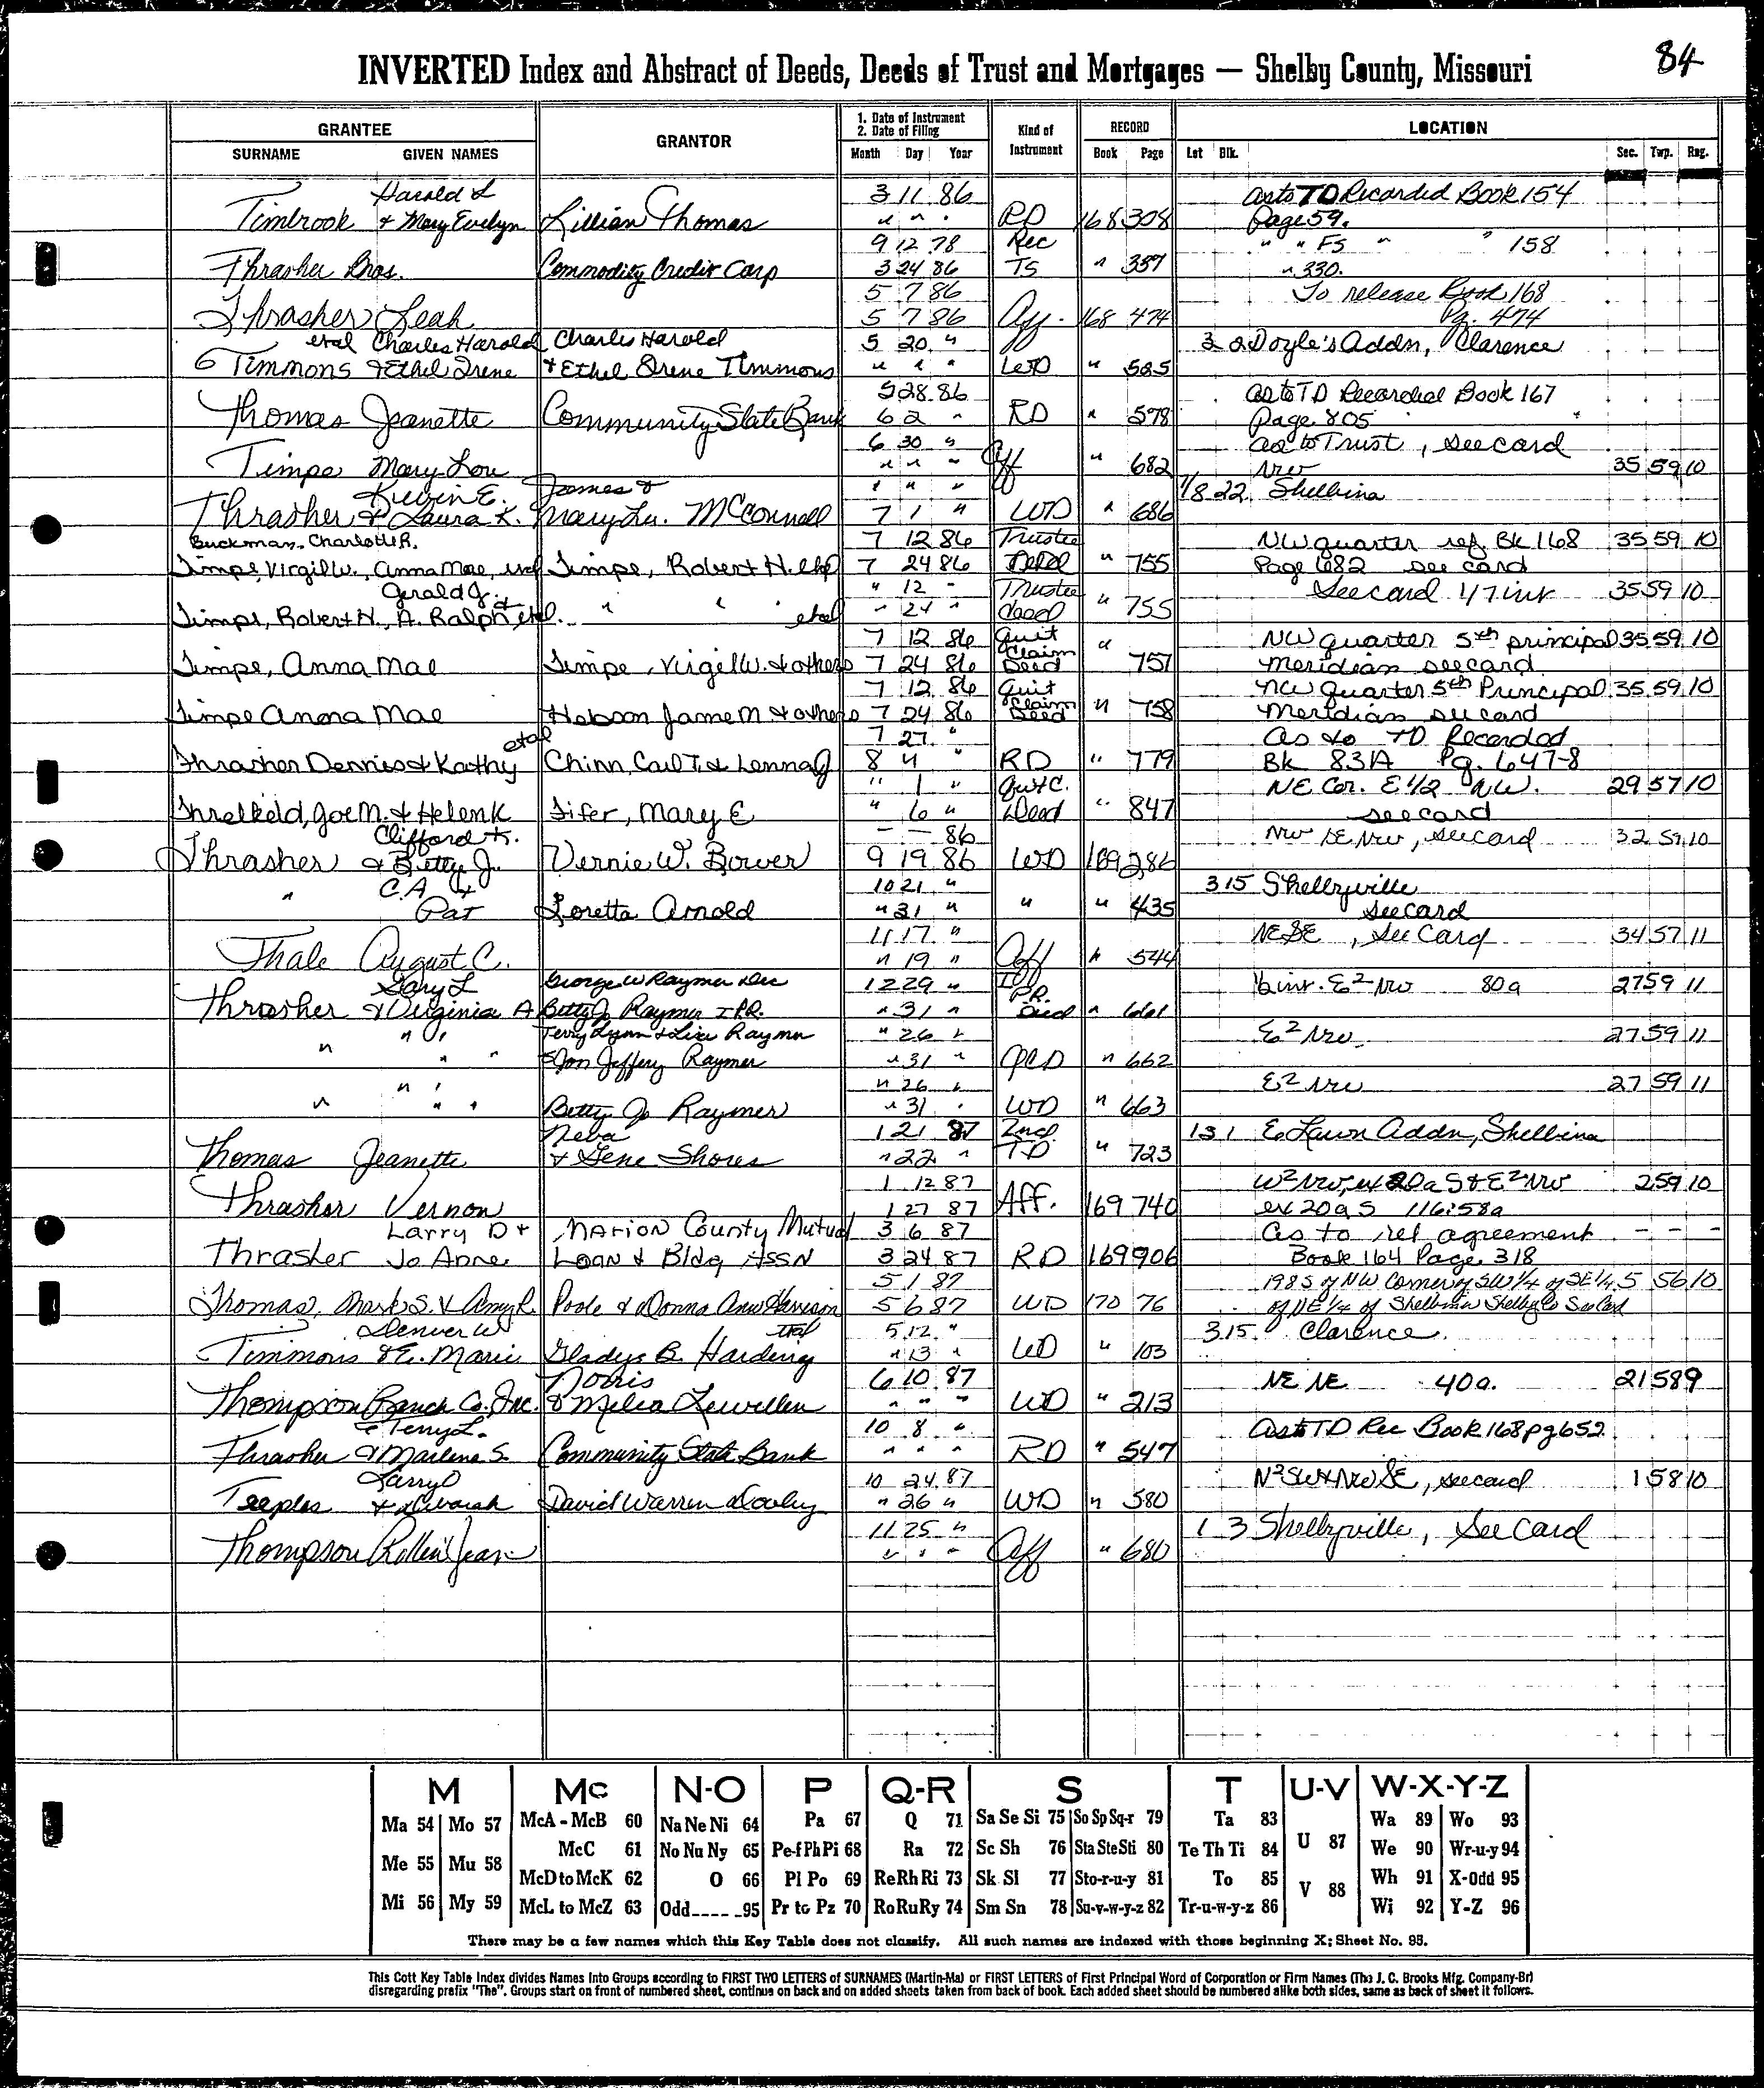 84
INVERTED Index and Abstract of Deeds, Deeds of Trust and Mortgages — Shelby County, Missouri
GRANTEE GRANTOR 1. Date of Instrument 2. Date of Filing Kind of Instrument RECORD LOCATION
SURNAME GIVEN NAMES Month Day Year Book Page Lot Blk. Sec. Twp. Rng.
Harold L 3 11 86 As to TD Recorded Book 154
Timbrook & Mary Evelyn Lillian Thomas " " " RD 168 308 Page 59.
9 12 78 Rec " " FS " " 158
Thrasher Bros. Commodity Credit Corp 3 24 86 TS " 357 " 330.
5 7 86 To release Book 168
Thrasher Leah 5 7 86 Aff. 168 474 Pg. 474
etal Charles Harold Charles Harold 5 20 " 3 2 Doyle's Addn, Clarence
6 Timmons & Ethel Irene & Ethel Irene Timmons " " " WD " 525
5 28 86 As to TD Recorded Book 167
Thomas Jeanette Community State Bank 6 2 " RD " 578 Page 805
6 30 " as to Trust, see card
Timpe Mary Lou " " " Aff " 682 NW 35 59 10
Kevin E. James & " " " 1/8 22 Shelbina
Thrasher & Laura K. Mary Lu. McConnell 7 1 " WD " 686
Buckman, Charlotte R. 7 12 86 Trustee NW quarter ref. Bk 168 35 59 10
Timpe, Virgil W., Anna Mae, etal Timpe, Robert H. etal 7 24 86 Deed " 755 Page 682 see card
Gerald J. & " 12 " Trustee See card 1/7 int 35 59 10
Timpe, Robert H., A. Ralph, etal. " " etal " 24 " deed " 755
7 12 86 Quit Claim " NW quarter 5th principal 35 59 10
Timpe, Anna Mae Timpe, Virgil W. & others 7 24 86 Deed 757 Meridian see card
7 12 86 Quit Claim NW quarter 5th Principal 35 59 10
Timpe Anna Mae Hobson Jame M & others 7 24 86 Deed " 758 Meridian see card
etal 7 27 " As to TD Recorded
Thrasher Dennis & Kathy Chinn, Carl T. & Lenna J 8 4 " RD " 779 Bk 83A Pg. 647-8
" 1 " Quit C. NE Cor. E 1/2 NW. 29 57 10
Threlkeld, Joe M. & Helen K Tifer, Mary E " 6 " Deed " 847 see card
Clifford K. — — 86 NW SE NW, see card 32 59 10
Thrasher & Betty J. Vernie W. Bower 9 19 86 WD 169 286
C.A. & 10 21 " 3 15 Shelbyville
" Pat Loretta Arnold " 31 " " " 435 see card
11 17 " NE SE, See Card 34 57 11
Thale August C. " 19 " Aff " 544
Gary L George W Raymer Dec 12 29 " 1/2 int. E² NW 80a 27 59 11
Thrasher & Virginia A Betty J Raymer I PR. " 31 " P.R. Deed " 661
" " Terry Lynn & Lisa Raymer " 26 " E² NW 27 59 11
" " " & Jon Jeffery Raymer " 31 " QCD " 662
" " " 26 " E² NW 27 59 11
" " " Betty Jo Raymer " 31 " WD " 663
Neva 1 21 87 Ind. 13 1 E Lawn Addn, Shelbina
Thomas Jeanette & Gene Shores " 22 " TD " 723
1 12 87 W² NW, ex 20a S & E² NW 2 59 10
Thrasher Vernon 1 27 87 Aff. 169 740 ex 20a S 116.58a
Larry D & Marion County Mutual 3 6 87 As to ref agreement - - -
Thrasher Jo Anne Loan & Bldg Assn 3 24 87 RD 169 906 Book 164 Page 318
5 1 87 198 S of NW Corner of SW 1/4 of SE 1/4 5 56 10
Thomas, Mark S. & Amy R. Poole & Donna Ann Harrison 5 6 87 WD 170 76 of NE 1/4 of Shelbina Shelby Co See Card
Denver W etal 5 12 " 3 15 Clarence
Timmons & E. Marie Gladys B. Harding " 13 " WD " 103
Norris 6 10 87 NE NE 40a. 21 58 9
Thompson Ranch Co. Inc. & Melia Lewellen " " " WD " 213
Terry L. 10 8 " As to TD Rec Book 168 pg 652
Thrasher & Marlene S. Community State Bank " " " RD " 547
Larry D 10 24 87 N² SW & NW SE, see card 1 58 10
Teeples & Deborah David Warren Dooley " 26 " WD " 580
11 25 " 1 3 Shelbyville, See Card
Thompson Rollin Jean " " " Aff " 680
M Mc N-O P Q-R S T U-V W-X-Y-Z
Ma 54 Mo 57 McA - McB 60 Na Ne Ni 64 Pa 67 Q 71 Sa Se Si 75 So Sp Sq-r 79 Ta 83 U 87 Wa 89 Wo 93
Me 55 Mu 58 McC 61 No Nu Ny 65 Pe-f Ph Pi 68 Ra 72 Sc Sh 76 Sta Ste Sti 80 Te Th Ti 84 We 90 Wr-u-y 94
McD to McK 62 O 66 Pl Po 69 Re Rh Ri 73 Sk Sl 77 Sto-r-u-y 81 To 85 V 88 Wh 91 X-Odd 95
Mi 56 My 59 McL to McZ 63 Odd---- -95 Pr to Pz 70 Ro Ru Ry 74 Sm Sn 78 Su-v-w-y-z 82 Tr-u-w-y-z 86 Wi 92 Y-Z 96
There may be a few names which this Key Table does not classify. All such names are indexed with those beginning X; Sheet No. 95.
This Cott Key Table Index divides Names Into Groups according to FIRST TWO LETTERS of SURNAMES (Martin-Ma) or FIRST LETTERS of First Principal Word of Corporation or Firm Names (The J. C. Brooks Mfg. Company-Br)
disregarding prefix "The". Groups start on front of numbered sheet, continue on back and on added sheets taken from back of book. Each added sheet should be numbered alike both sides, same as back of sheet it follows.